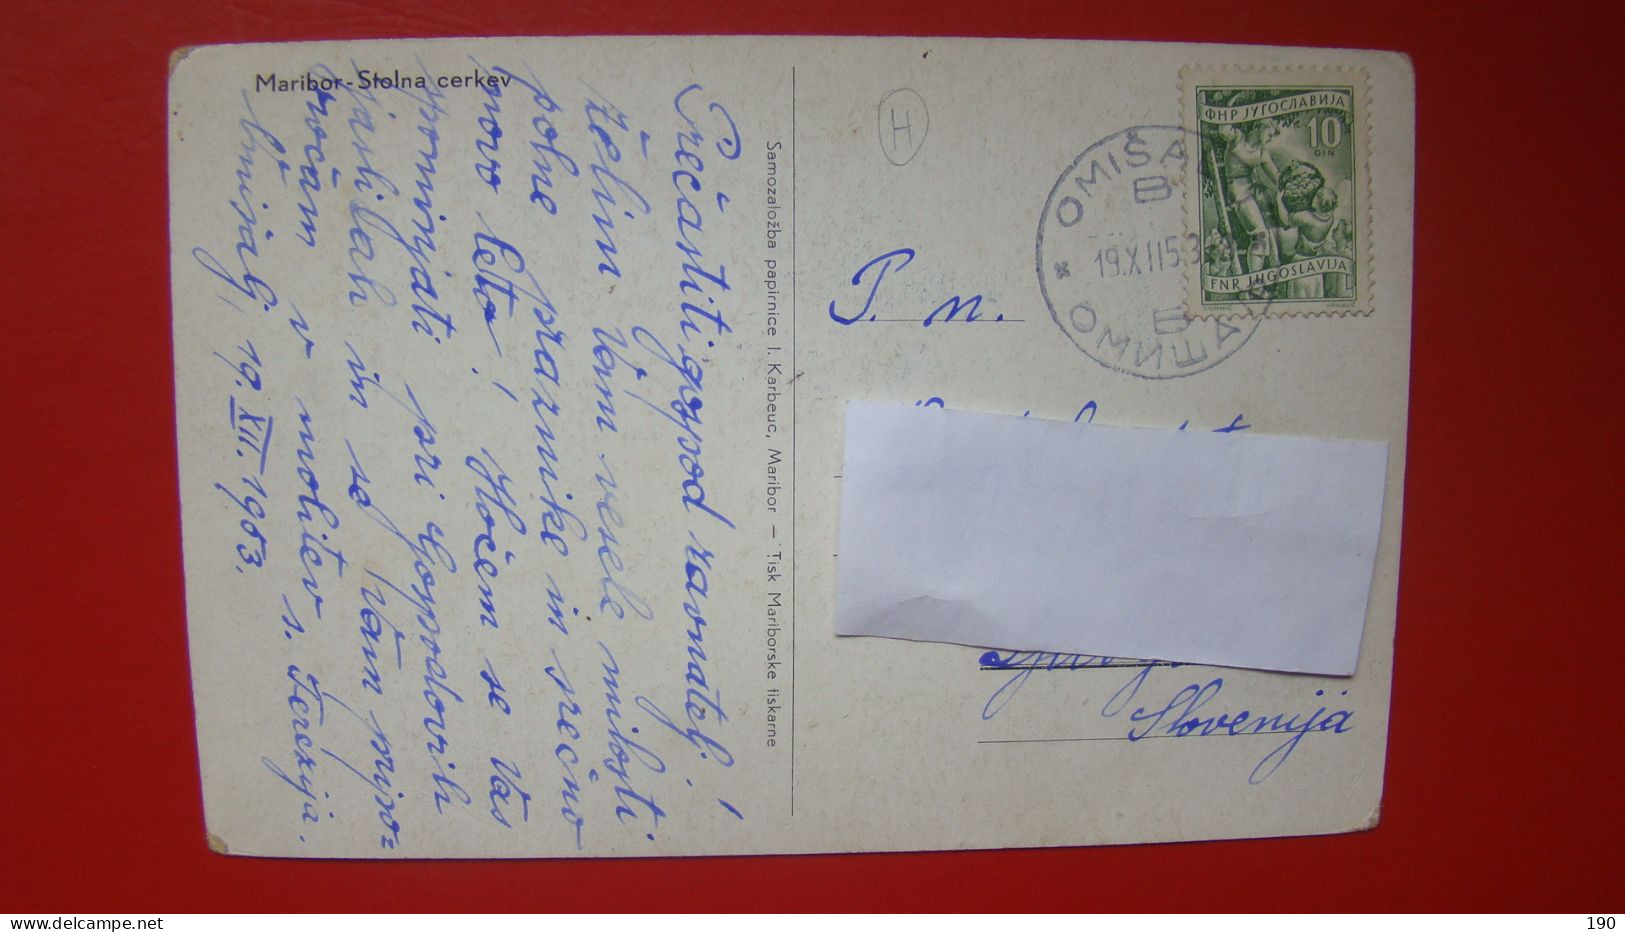 Maribor - Stolna cerkev
Prečastiti gospod ravnatelj!
Želim Vam vesele milosti
polne praznike in srečno
novo leto! Hočem se Vas
spominjati pri Gospodovih
jaslicah in se Vam pripo=
ročam v molitev s. Terezija.
Omišalj, 19. XII. 1953.
Samozaložba papirnice I. Karbeuc, Maribor — Tisk Mariborske tiskarne
H
ФНР ЈУГОСЛАВИЈА
10
DIN
FNR JUGOSLAVIJA
OMIŠA
B
19.XII.53
Б
ОМИША
P. n.
Slovenija
190